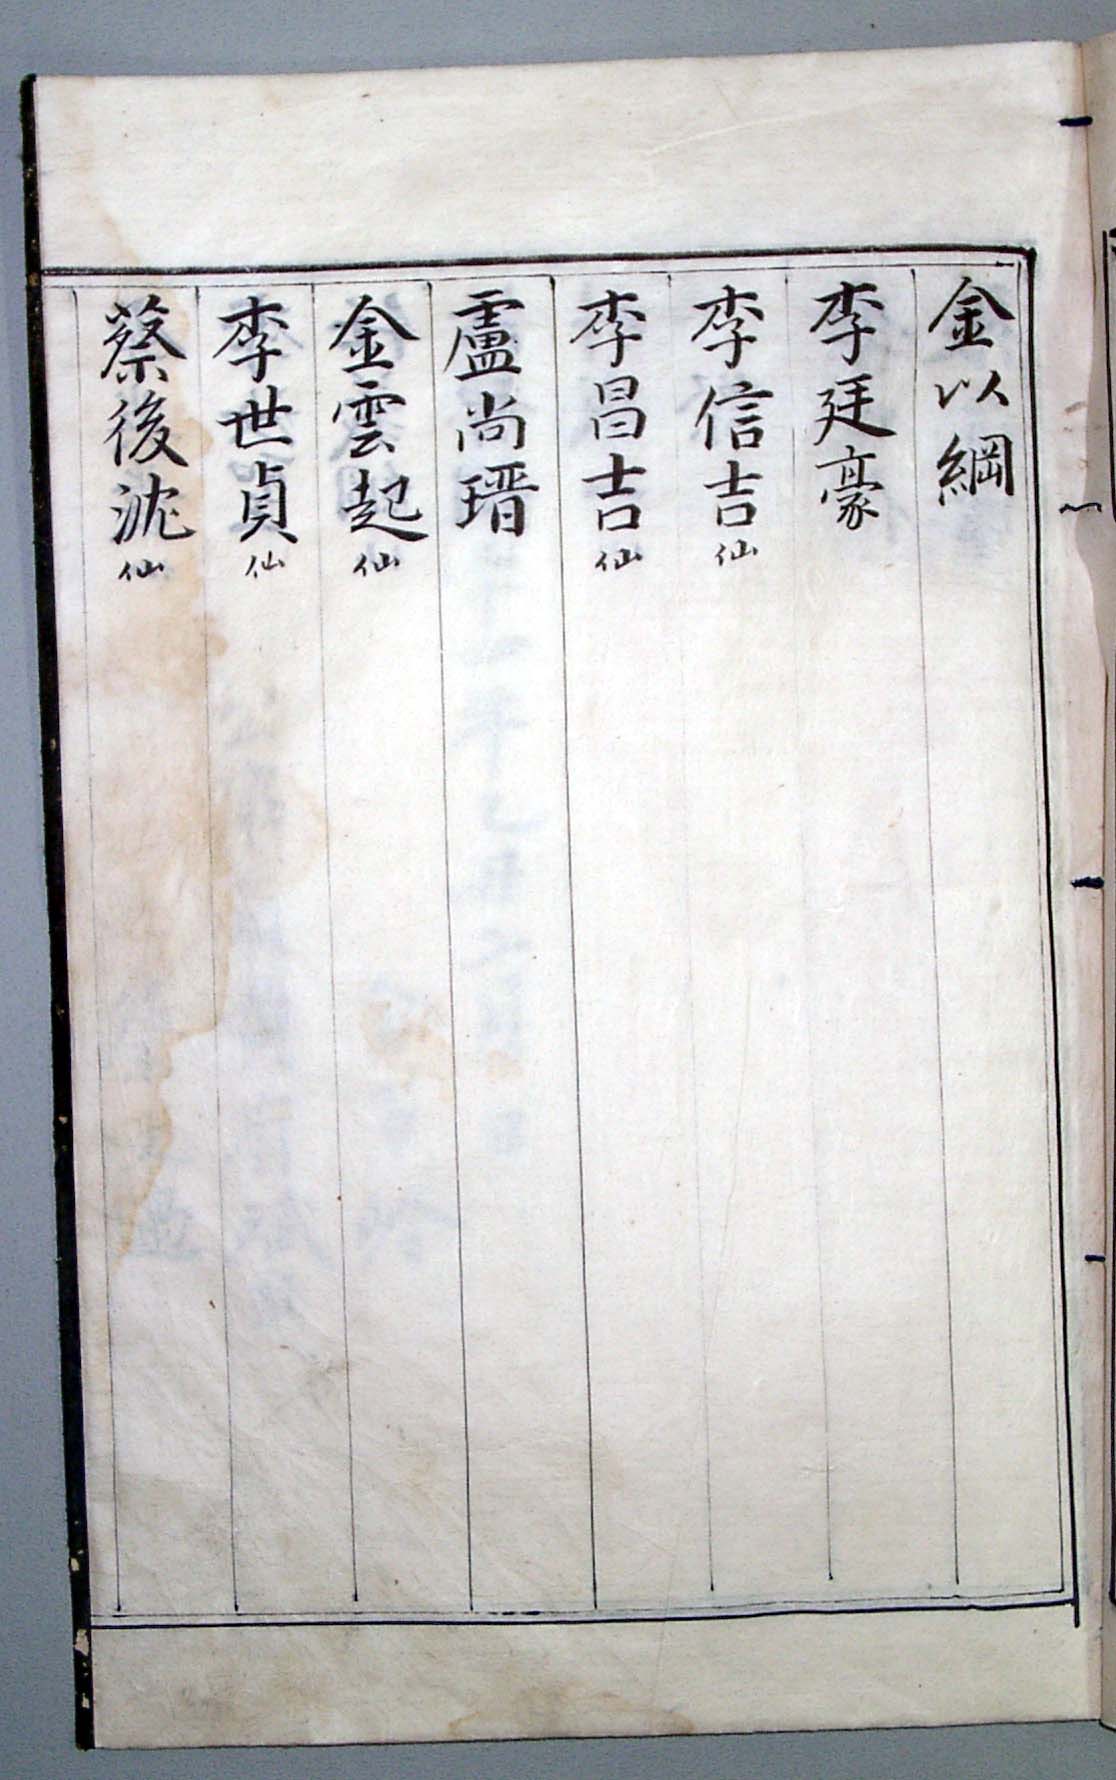 金以綱
李廷豪
李信吉仙
李昌吉仙
盧尚瑨
金雲起仙
李世貞仙
蔡後沈仙